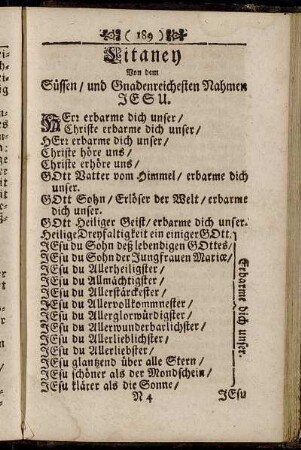 ( 189 )
Litaney
Von dem
Süssen / und Gnadenreichesten Nahmen
JESU.
HErr erbarme dich unser /
Christe erbarme dich unser /
HErr erbarme dich unser /
Christe höre uns /
Christe erhöre uns /
GOtt Vatter vom Himmel / erbarme dich
unser.
GOtt Sohn / Erlöser der Welt / erbarme
dich unser.
GOtt Heiliger Geist / erbarme dich unser.
Heilige Dreyfaltigkeit ein einiger GOtt.
JEsu du Sohn deß lebendigen GOttes /
JEsu du Sohn der Jungfrauen Mariæ /
JEsu du Allerheiligster /
JEsu du Allmächtigster /
JEsu du Allerstärckester /
JEsu du Allervollkommnester /
JEsu du Allerglorwürdigster /
JEsu du Allerwunderbarlichster /
JEsu du Allerlieblichster /
JEsu du Allerliebster /
JEsu glantzend über alle Stern /
JEsu schöner als der Mondschein /
JEsu klärer als die Sonne /
Erbarme dich unser.
N 4
JEsu